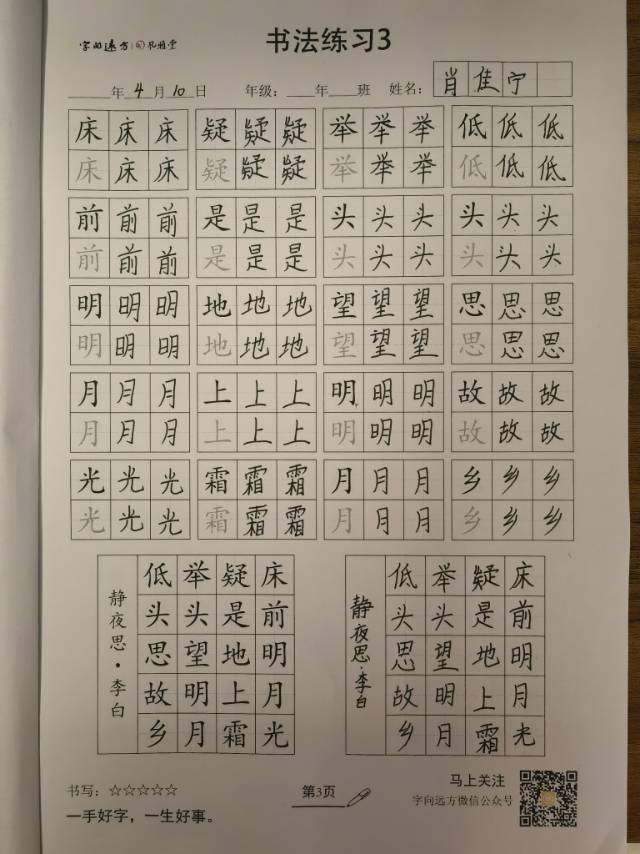 字向远方 礼雅堂
书法练习3
年 4 月 10 日 年级： 年 班 姓名： 肖佳宁
床床床 疑疑疑 举举举 低低低
床床床 疑疑疑 举举举 低低低
前前前 是是是 头头头 头头头
前前前 是是是 头头头 头头头
明明明 地地地 望望望 思思思
明明明 地地地 望望望 思思思
月月月 上上上 明明明 故故故
月月月 上上上 明明明 故故故
光光光 霜霜霜 月月月 乡乡乡
光光光 霜霜霜 月月月 乡乡乡
床前明月光
疑是地上霜
举头望明月
低头思故乡
静夜思·李白
床前明月光
疑是地上霜
举头望明月
低头思故乡
静夜思·李白
书写：☆☆☆☆☆
一手好字，一生好事。
第3页
马上关注
字向远方微信公众号